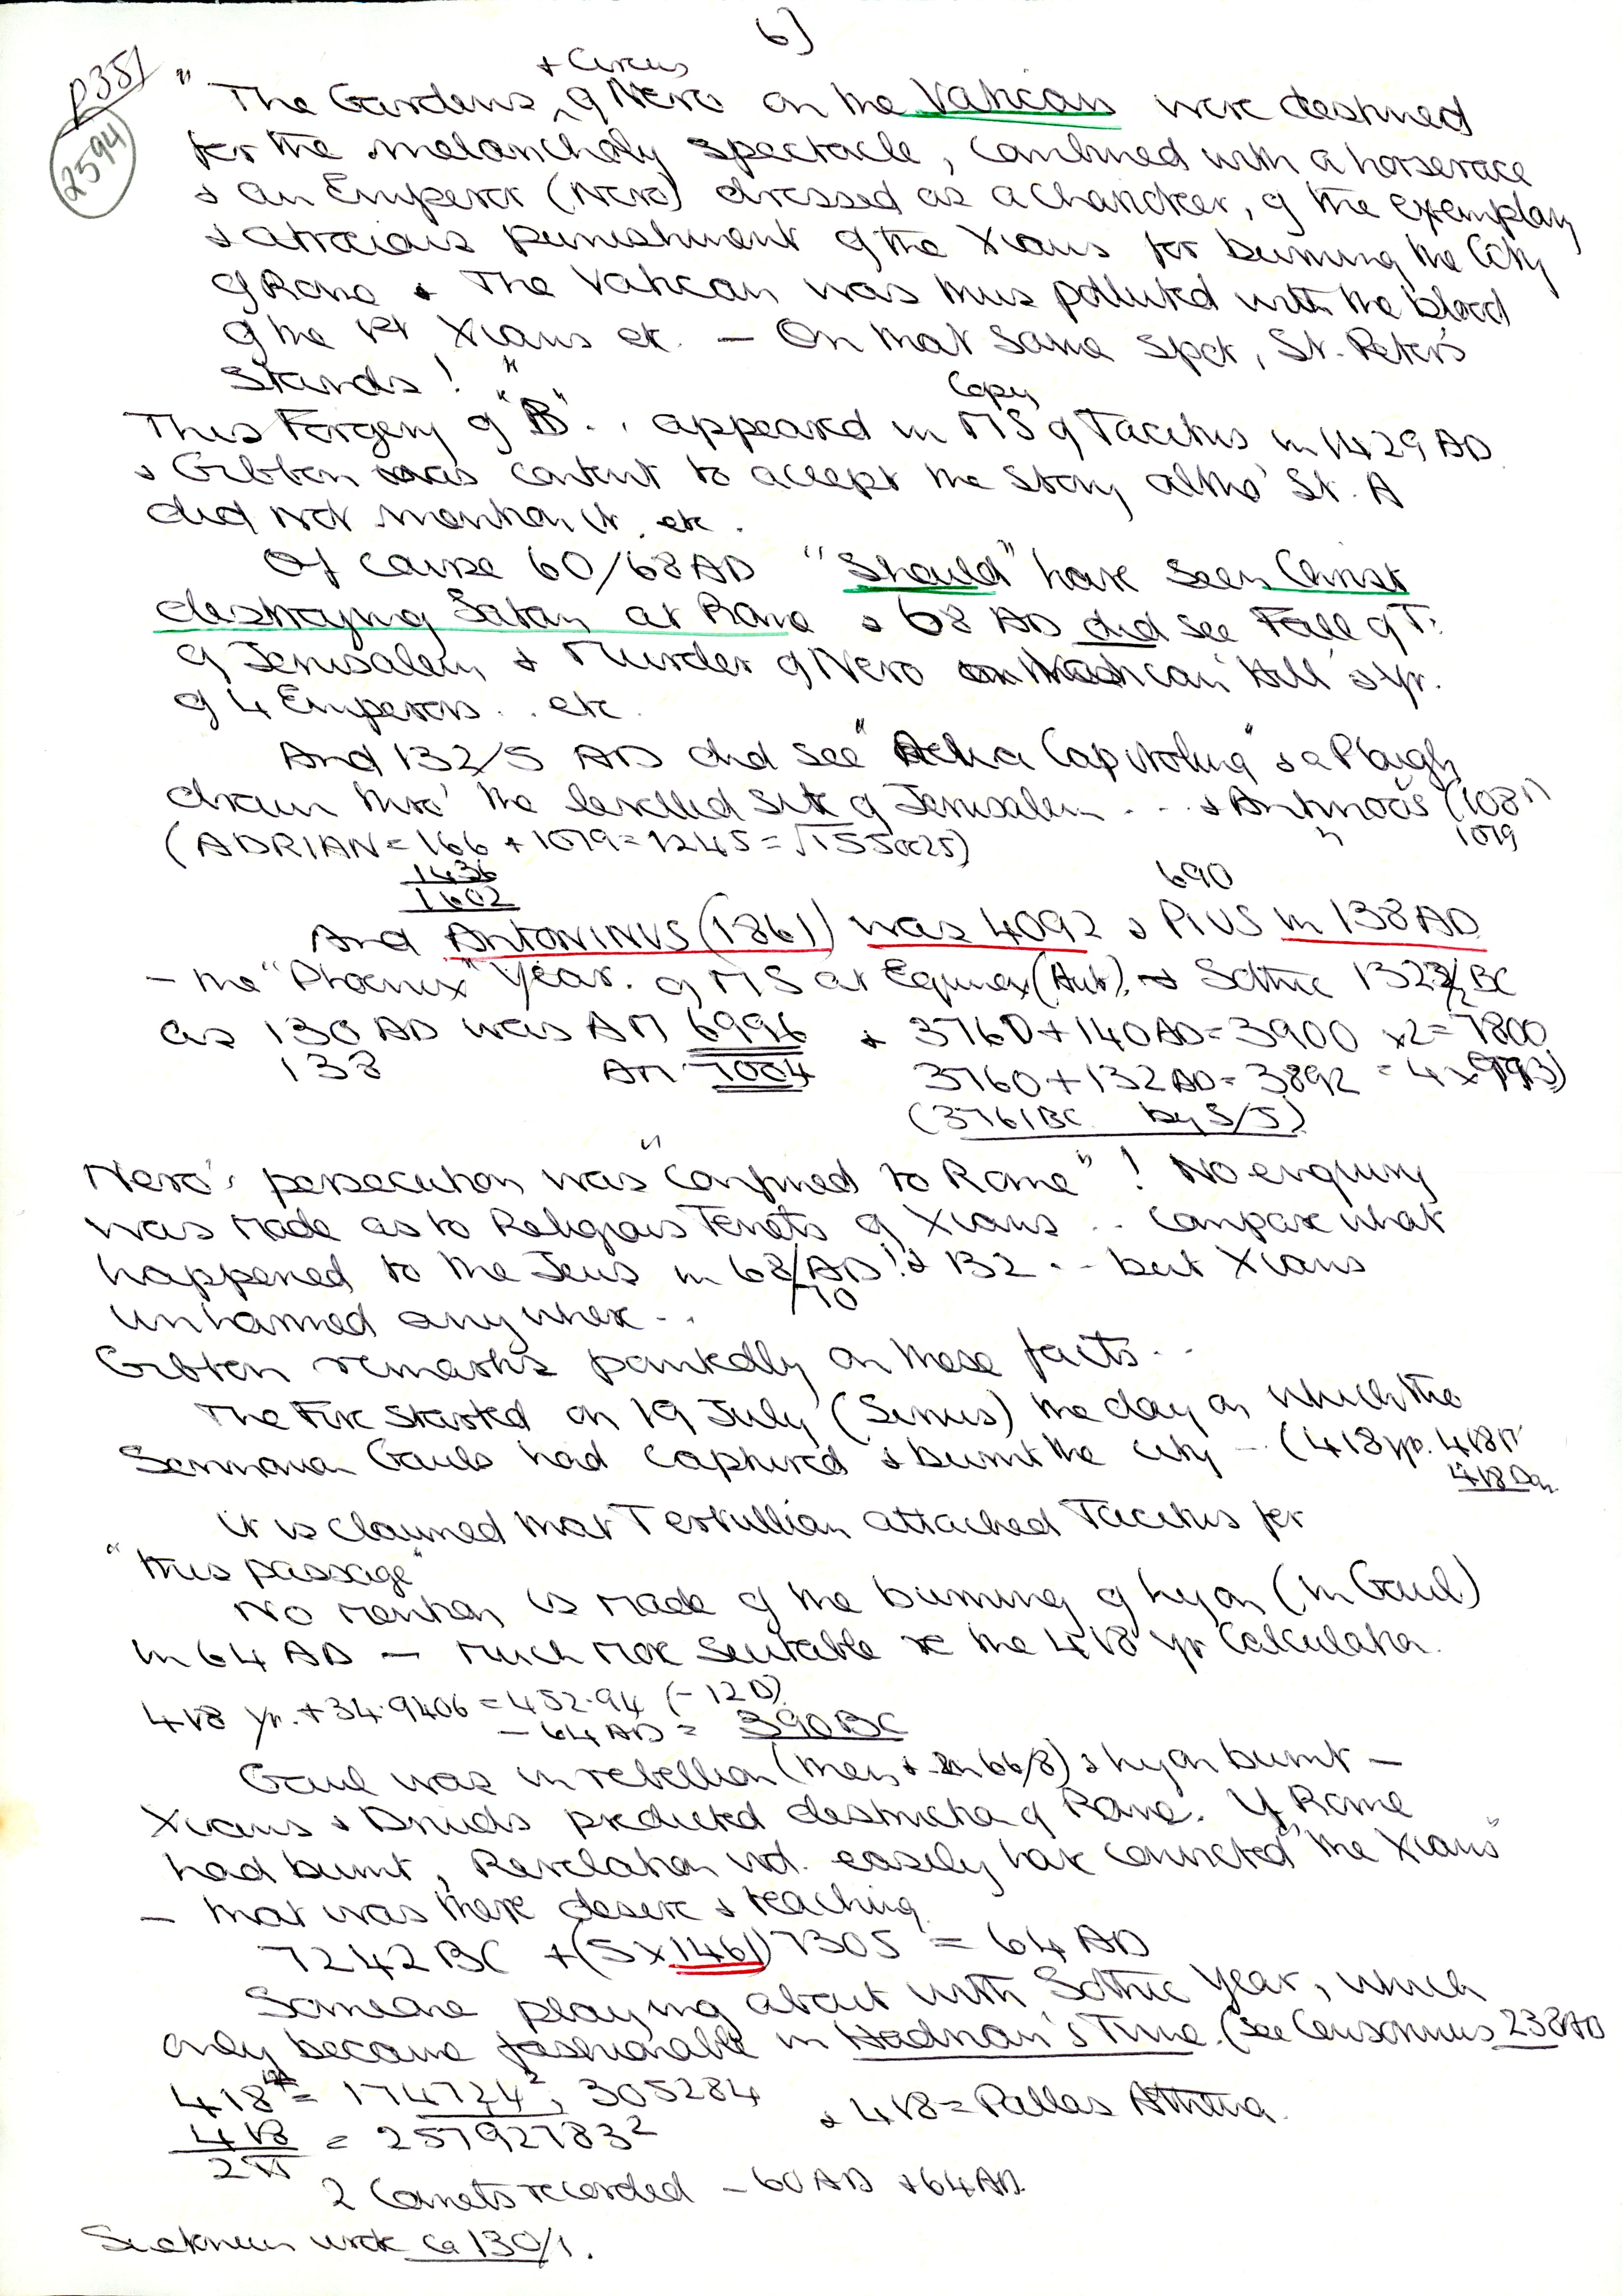 6]
p351
2594
+ Circus
"The Gardens ^ of Nero on the Vatican were destined
for the melancholy spectacle, combined with a horserace
& an Emperor (Nero) dressed as a Charioteer, of the exemplary
& atrocious punishment of the Xians for burning the City
of Rome & The Vatican was thus polluted with the blood
of the 1st Xians etc. — On that same spot, St. Peter's
stands!"
Copy
This Forgery of "B".. appeared in MS of Tacitus in 1429 AD
& Gibbon was content to accept the story altho' St. A
did not mention it. etc.
Of course 60/68 AD "Should" have seen Christ
destroying Satan at Rome & 68 AD did see Fall of T:
of Jerusalem & Murder of Nero on Vatican Hill & Yr.
of 4 Emperors.. etc.
And 132/5 AD did see "Aelia Capitolina" & a Plough
drawn thro' the levelled site of Jerusalem... & Antinoos (1081)
" 1079
(ADRIAN = 166 + 1079 = 1245 = √1550025)
1436
1602
690
And ANTONINUS (1861) was 4092 & PIUS in 138 AD
— the "Phoenix" Year. of MS at Equinox (Aut). & Sothic 1322 BC
as 130 AD was AM 6996 & 3760 + 140 AD = 3900 x2 = 7800
138 AM 7004 3760 + 132 AD = 3892 = 4 x 973)
(3761 BC by S/J)
Nero's persecution was "Confined to Rome"! No enquiry
was made as to Religious Tenets of Xians.. Compare what
happened to the Jews in 68/70 AD! & 132.. but Xians
unharmed anywhere..
Gibbon remarks pointedly on these facts..
The Fire started on 19 July (Sirius) the day on which the
Sennonian Gauls had captured & burnt the city — (418 yr. 418 M
418 Da.
It is claimed that Tertullian attached Tacitus for
"this passage"
No mention is made of the burning of Lyon (in Gaul)
in 64 AD — much more suitable re the 418 yr Calculation.
418 yr. + 34.9406 = 452.94 (-12D)
- 64 AD = 390 BC
Gaul was in rebellion (then & in 66/8) & Lyon burnt —
Xians & Druids predicted destruction of Rome. If Rome
had burnt, Revelation wd. easily have connected "the Xians"
— that was there desire & teaching
7242 BC + (5 x 1461) 7305 = 64 AD
Someone playing about with Sothic Year, which
only became fashionable in Hadrian's Time. (see Censorinus 238 AD
418² = 174724², 305284
& 418 = Pallas Athena.
418/2π = 25792783²
2 Comets recorded — 60 AD & 64 AD.
Suetonius wrote ca 130/1.